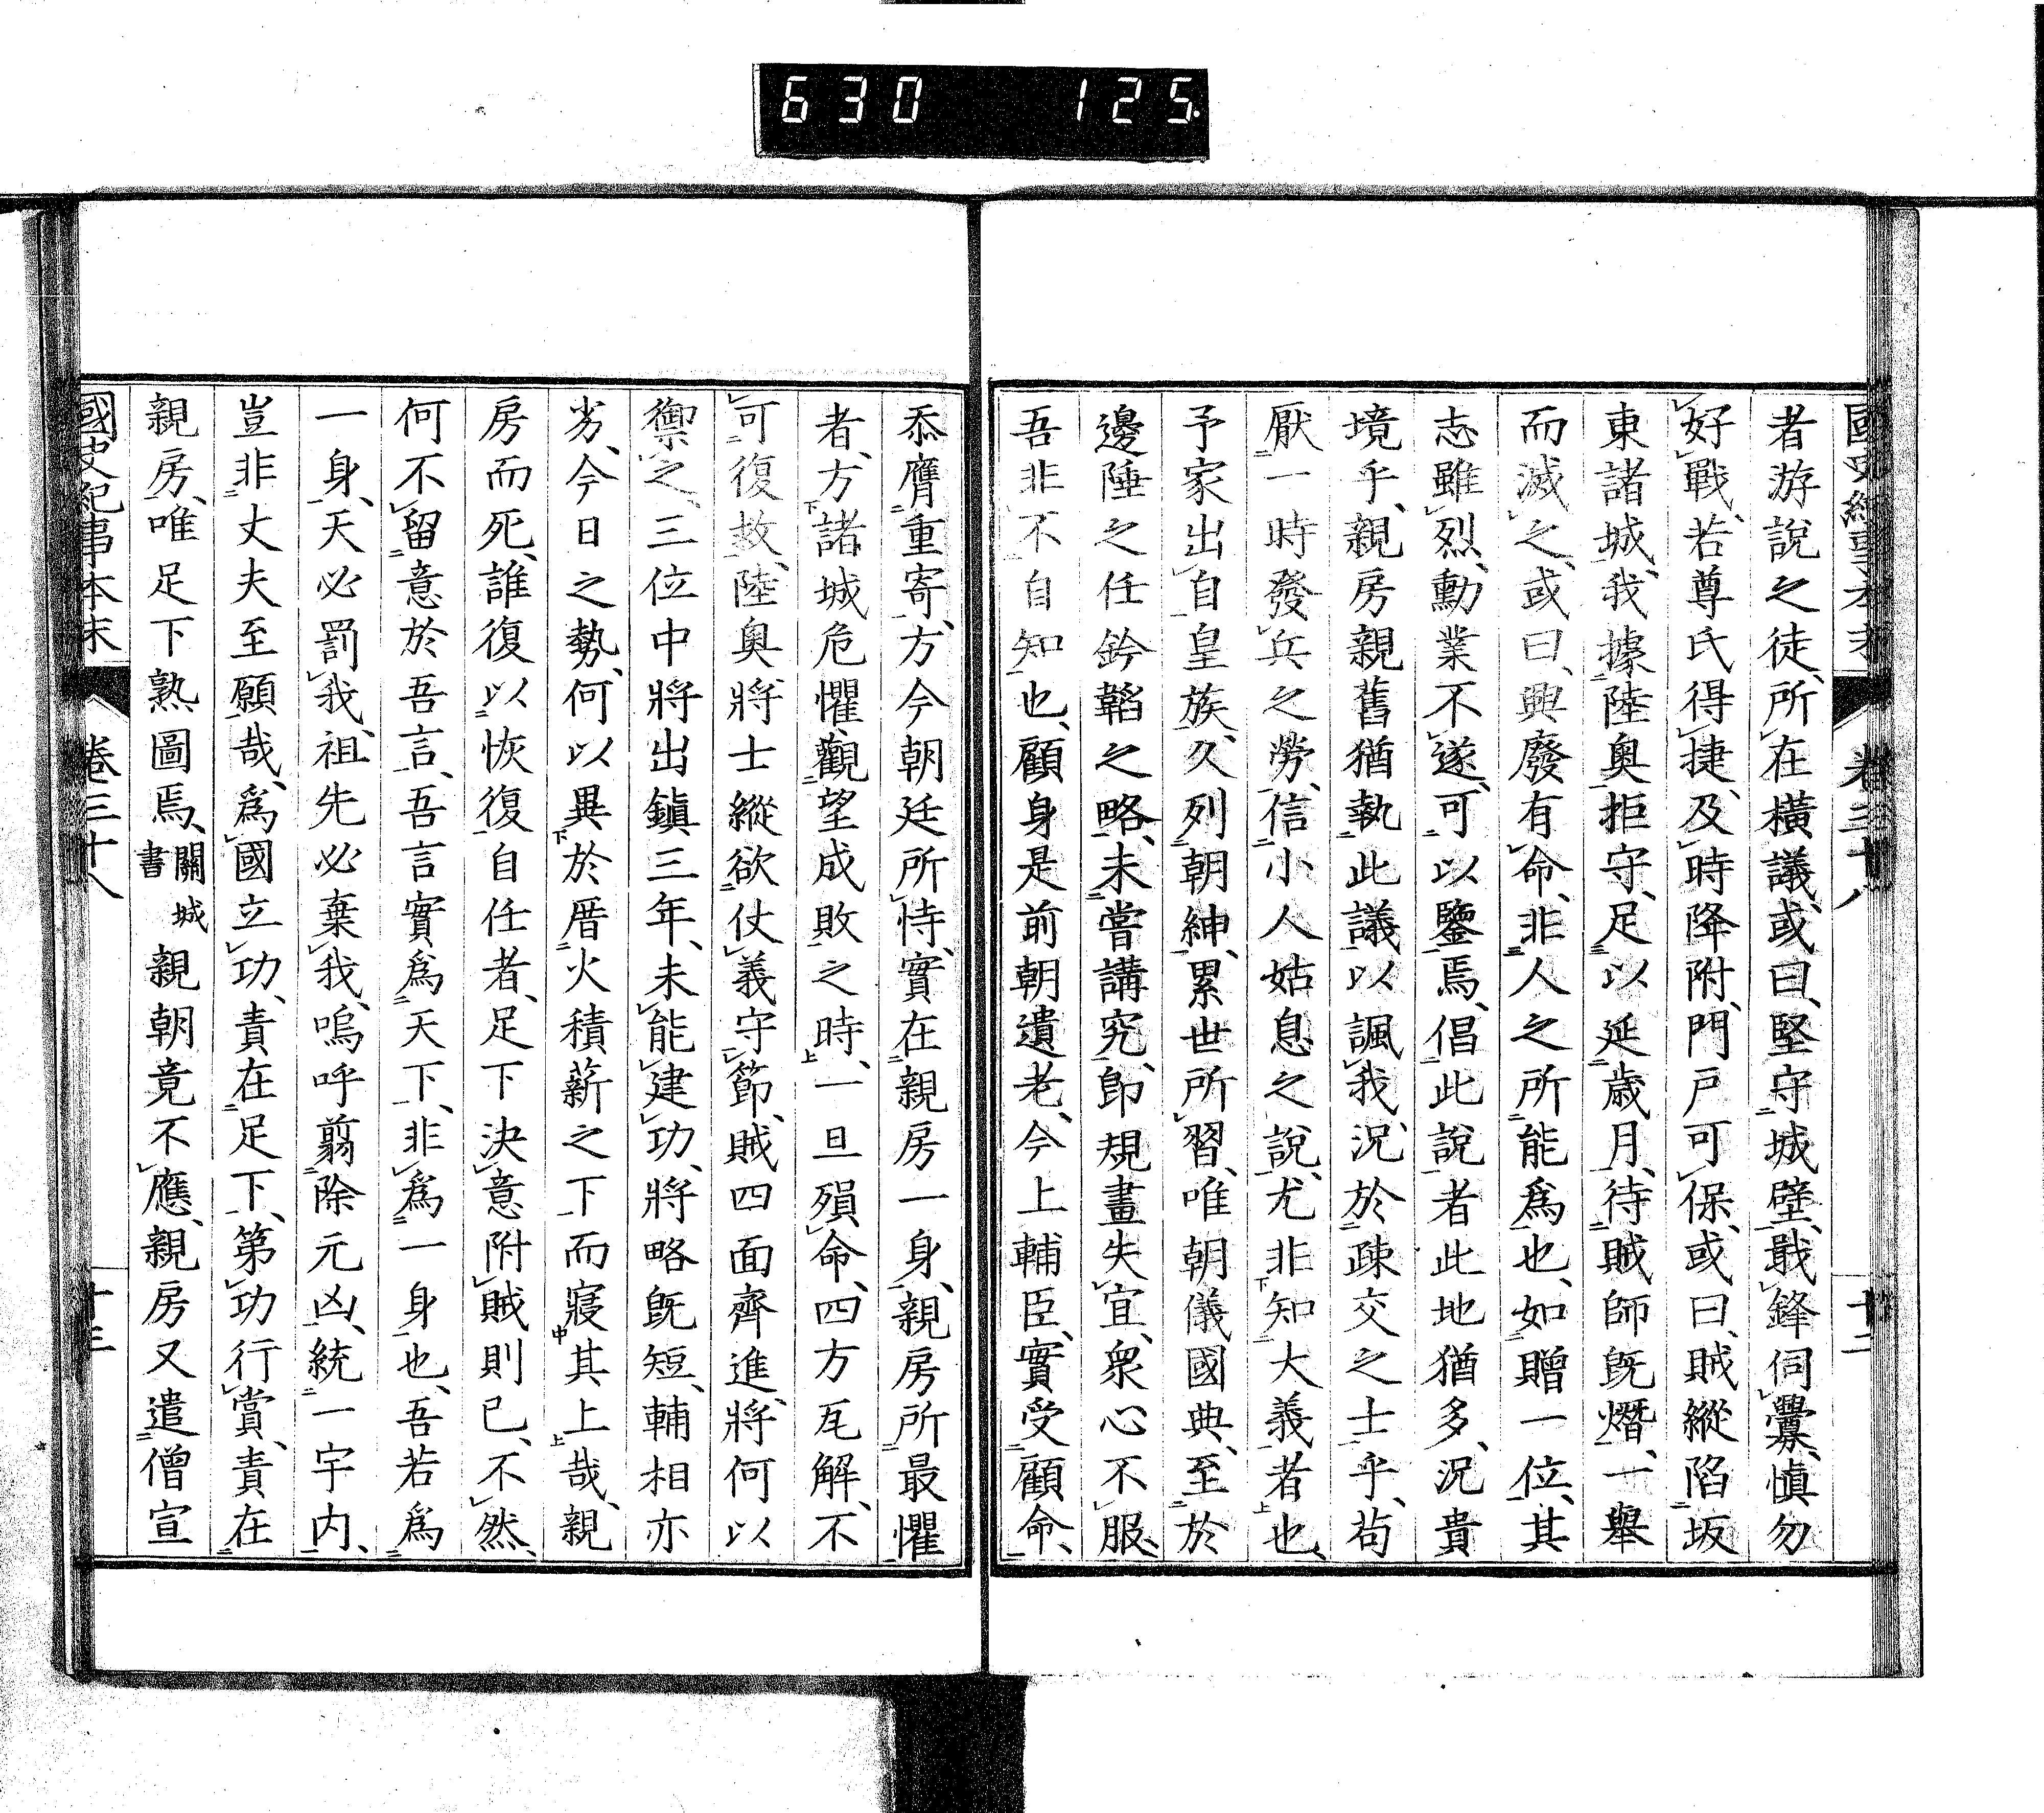 630 125
國史紀事本末 卷三十八 十二
者游說之徒、所在橫議、或曰、堅守城壁、戢鋒伺釁、愼勿
好戰、若尊氏得捷、及時降附、門戸可保、或曰、賊縱陷坂
東諸城、我據陸奥拒守、足以延歳月、待賊師旣熸、一舉
而滅之、或曰、興廢有命、非人之所能爲也、如贈一位、其
志雖烈、勳業不遂、可以鑒焉、倡此說者此地猶多、況貴
境乎、親房親舊猶執此議以諷我、況於疎交之士乎、苟
厭一時發兵之勞、信小人姑息之說、尤非知大義者也、
予家出自皇族、久列朝紳、累世所習、唯朝儀國典、至於
邊陲之任鈐韜之略、未嘗講究、卽規畫失宜、衆心不服、
吾非不自知也、顧身是前朝遺老、今上輔臣、實受顧命、
忝膺重寄、方今朝廷所恃、實在親房一身、親房所最懼
者、方諸城危懼、觀望成敗之時、一旦殞命、四方瓦解、不
可復救、陸奥將士縱欲仗義守節、賊四面齊進、將何以
禦之、三位中將出鎭三年、未能建功、將略旣短、輔相亦
劣、今日之勢、何以異於厝火積薪之下而寢其上哉、親
房而死、誰復以恢復自任者、足下決意附賊則已、不然、
何不留意於吾言、吾言實爲天下、非爲一身也、吾若爲
一身、天必罰我、祖先必棄我、嗚呼翦除元凶、統一宇内、
豈非丈夫至願哉、爲國立功、責在足下、第功行賞、責在
親房、唯足下熟圖焉、關城書 親朝竟不應、親房又遣僧宣
國史紀事本末 卷三十八 十三